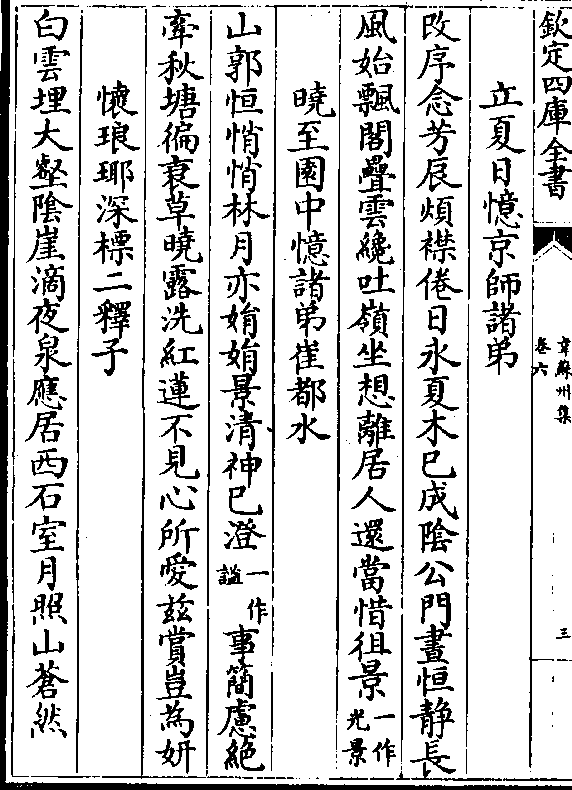 欽定四庫全書
韋蘇州集
卷六
三
立夏日憶京師諸弟
改序念芳辰煩襟倦日永夏木已成陰公門晝恒静長
風始飄閣疊雲纔吐嶺坐想離居人還當惜徂景一作光景
曉至園中憶諸弟崔都水
山郭恒悄悄林月亦娟娟景清神已澄一作謐事簡慮絶
牽秋塘徧衰草曉露洗紅蓮不見心所愛兹賞豈為妍
懷琅琊深標二釋子
白雲埋大壑陰崖滴夜泉應居西石室月照山蒼然